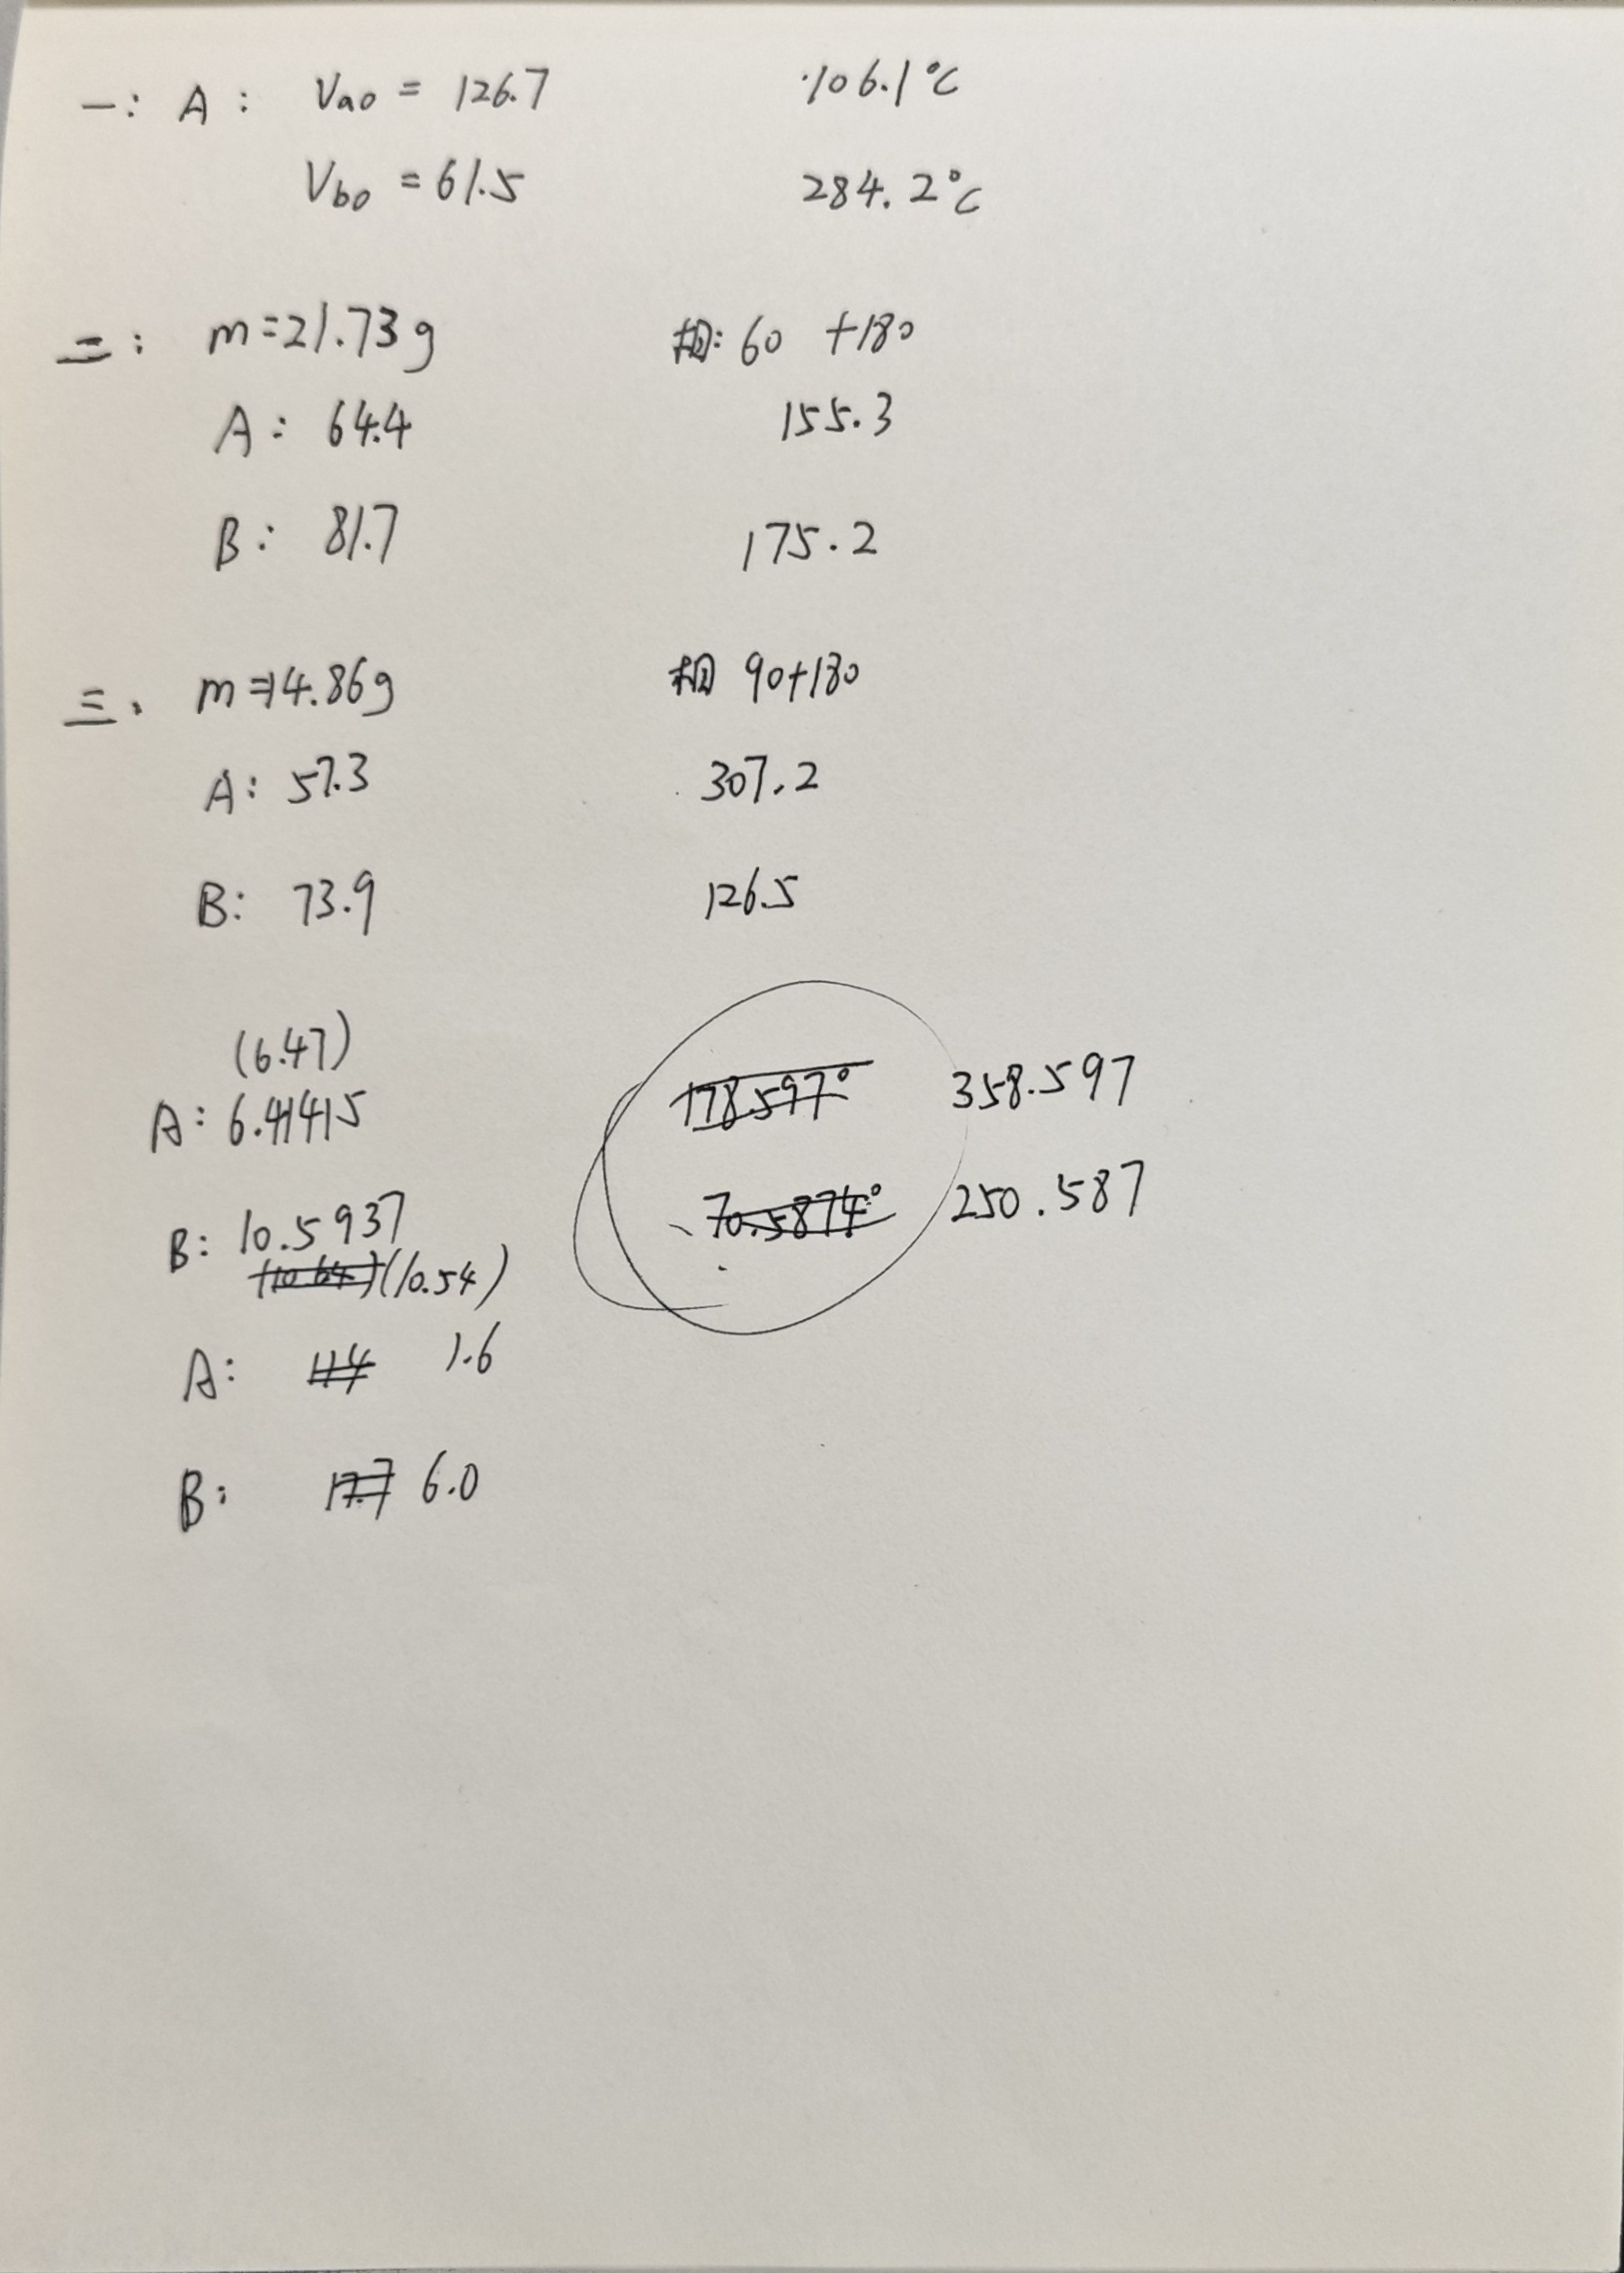 一: A: Va0 = 126.7 106.1℃
Vb0 = 61.5 284.2℃
二: m=21.73g 相: 60 +180
A: 64.4 155.3
B: 81.7 175.2
三、 m=14.86g 相 90+180
A: 57.3 307.2
B: 73.9 126.5
(6.47)
A: 6.41415 178.597° 358.597
B: 10.5937 70.5874° 250.587
(10.64) (10.54)
A: 1.6
B: 17.7 6.0